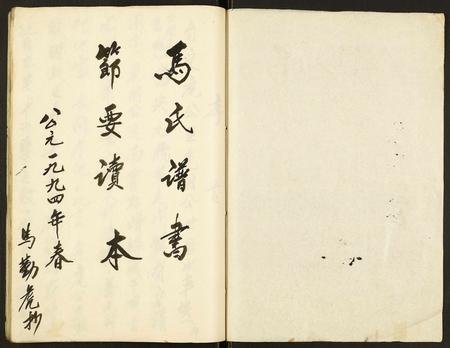 馬氏谱書
節要讀本
公元一九九四年春
馬勤虎抄